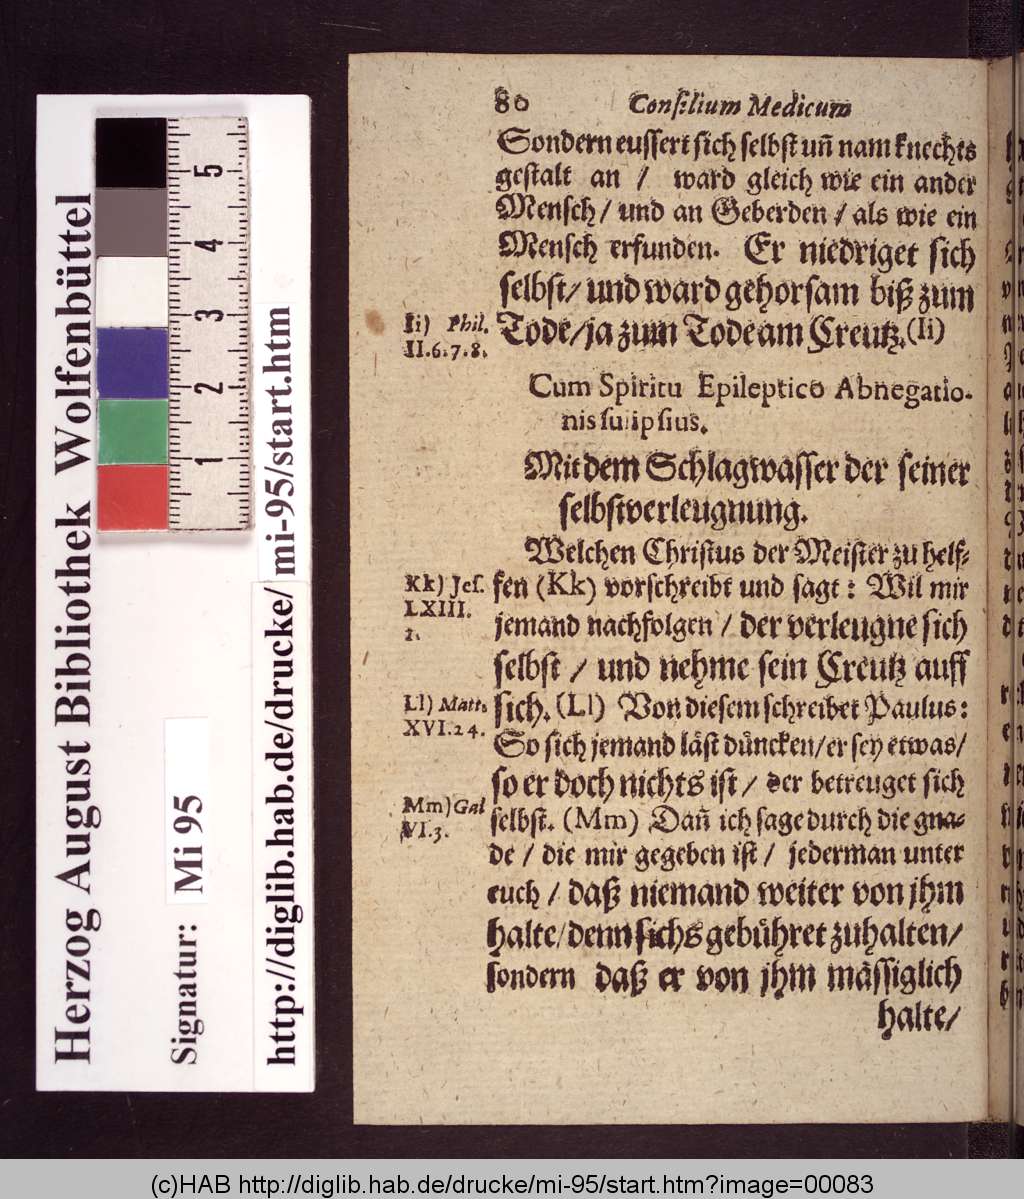 80 Consilium Medicum
Sondern eussert sich selbst uñ nam knechts
gestalt an / ward gleich wie ein ander
Mensch / und an Geberden / als wie ein
Mensch erfunden. Er niedriget sich
selbst / und ward gehorsam biß zum
Tode / ja zum Tode am Creutz. (Ii)
Ii) Phil.
II.6.7.8.
Cum Spiritu Epileptico Abnegatio-
nis sui ipsius.
Mit dem Schlagwasser der seiner
selbstverleugnung.
Welchen Christus der Meister zu helf-
fen (Kk) vorschreibt und sagt: Wil mir
jemand nachfolgen / der verleugne sich
selbst / und nehme sein Creutz auff
sich. (Ll) Von diesem schreibet Paulus:
So sich jemand läst düncken / er sey etwas /
so er doch nichts ist / der betreuget sich
selbst. (Mm) Dañ ich sage durch die gna-
de / die mir gegeben ist / jederman unter
euch / daß niemand weiter von jhm
halte / denn sichs gebühret zuhalten /
sondern daß er von jhm mässiglich
halte /
Kk) Jes.
LXIII.
1.
Ll) Matt.
XVI.24.
Mm) Gal
VI.3.
Herzog August Bibliothek Wolfenbüttel
Signatur: Mi 95
http://diglib.hab.de/drucke/mi-95/start.htm
5
4
3
2
1
(c)HAB http://diglib.hab.de/drucke/mi-95/start.htm?image=00083